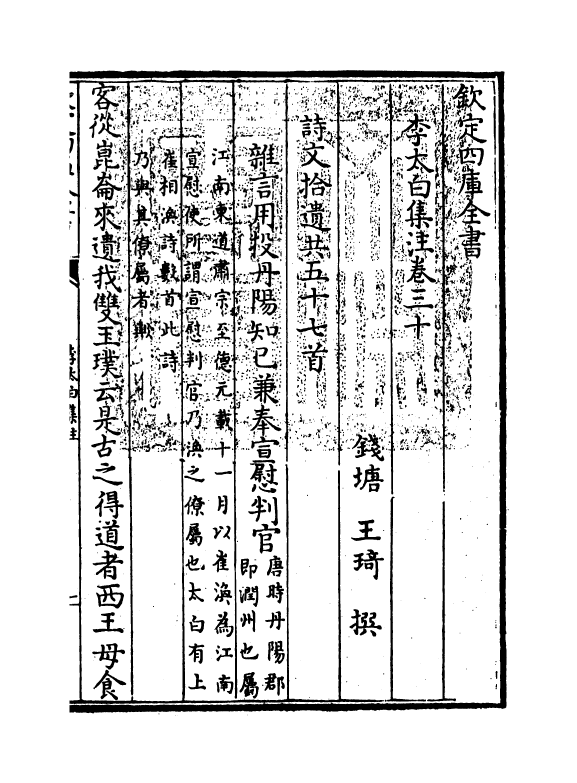 欽定四庫全書
李太白集注卷三十
錢塘 王琦 撰
詩文拾遺共五十七首
雜言用投丹陽知己兼奉宣慰判官 唐時丹陽郡
即潤州也屬
江南東道肅宗至德元載十一月以崔渙為江南
宣慰使所謂宣慰判官乃渙之僚屬也太白有上
崔相渙詩數首此詩
乃與其僚屬者歟
客從崑崙來遺我雙玉璞云是古之得道者西王母食
李太白集注